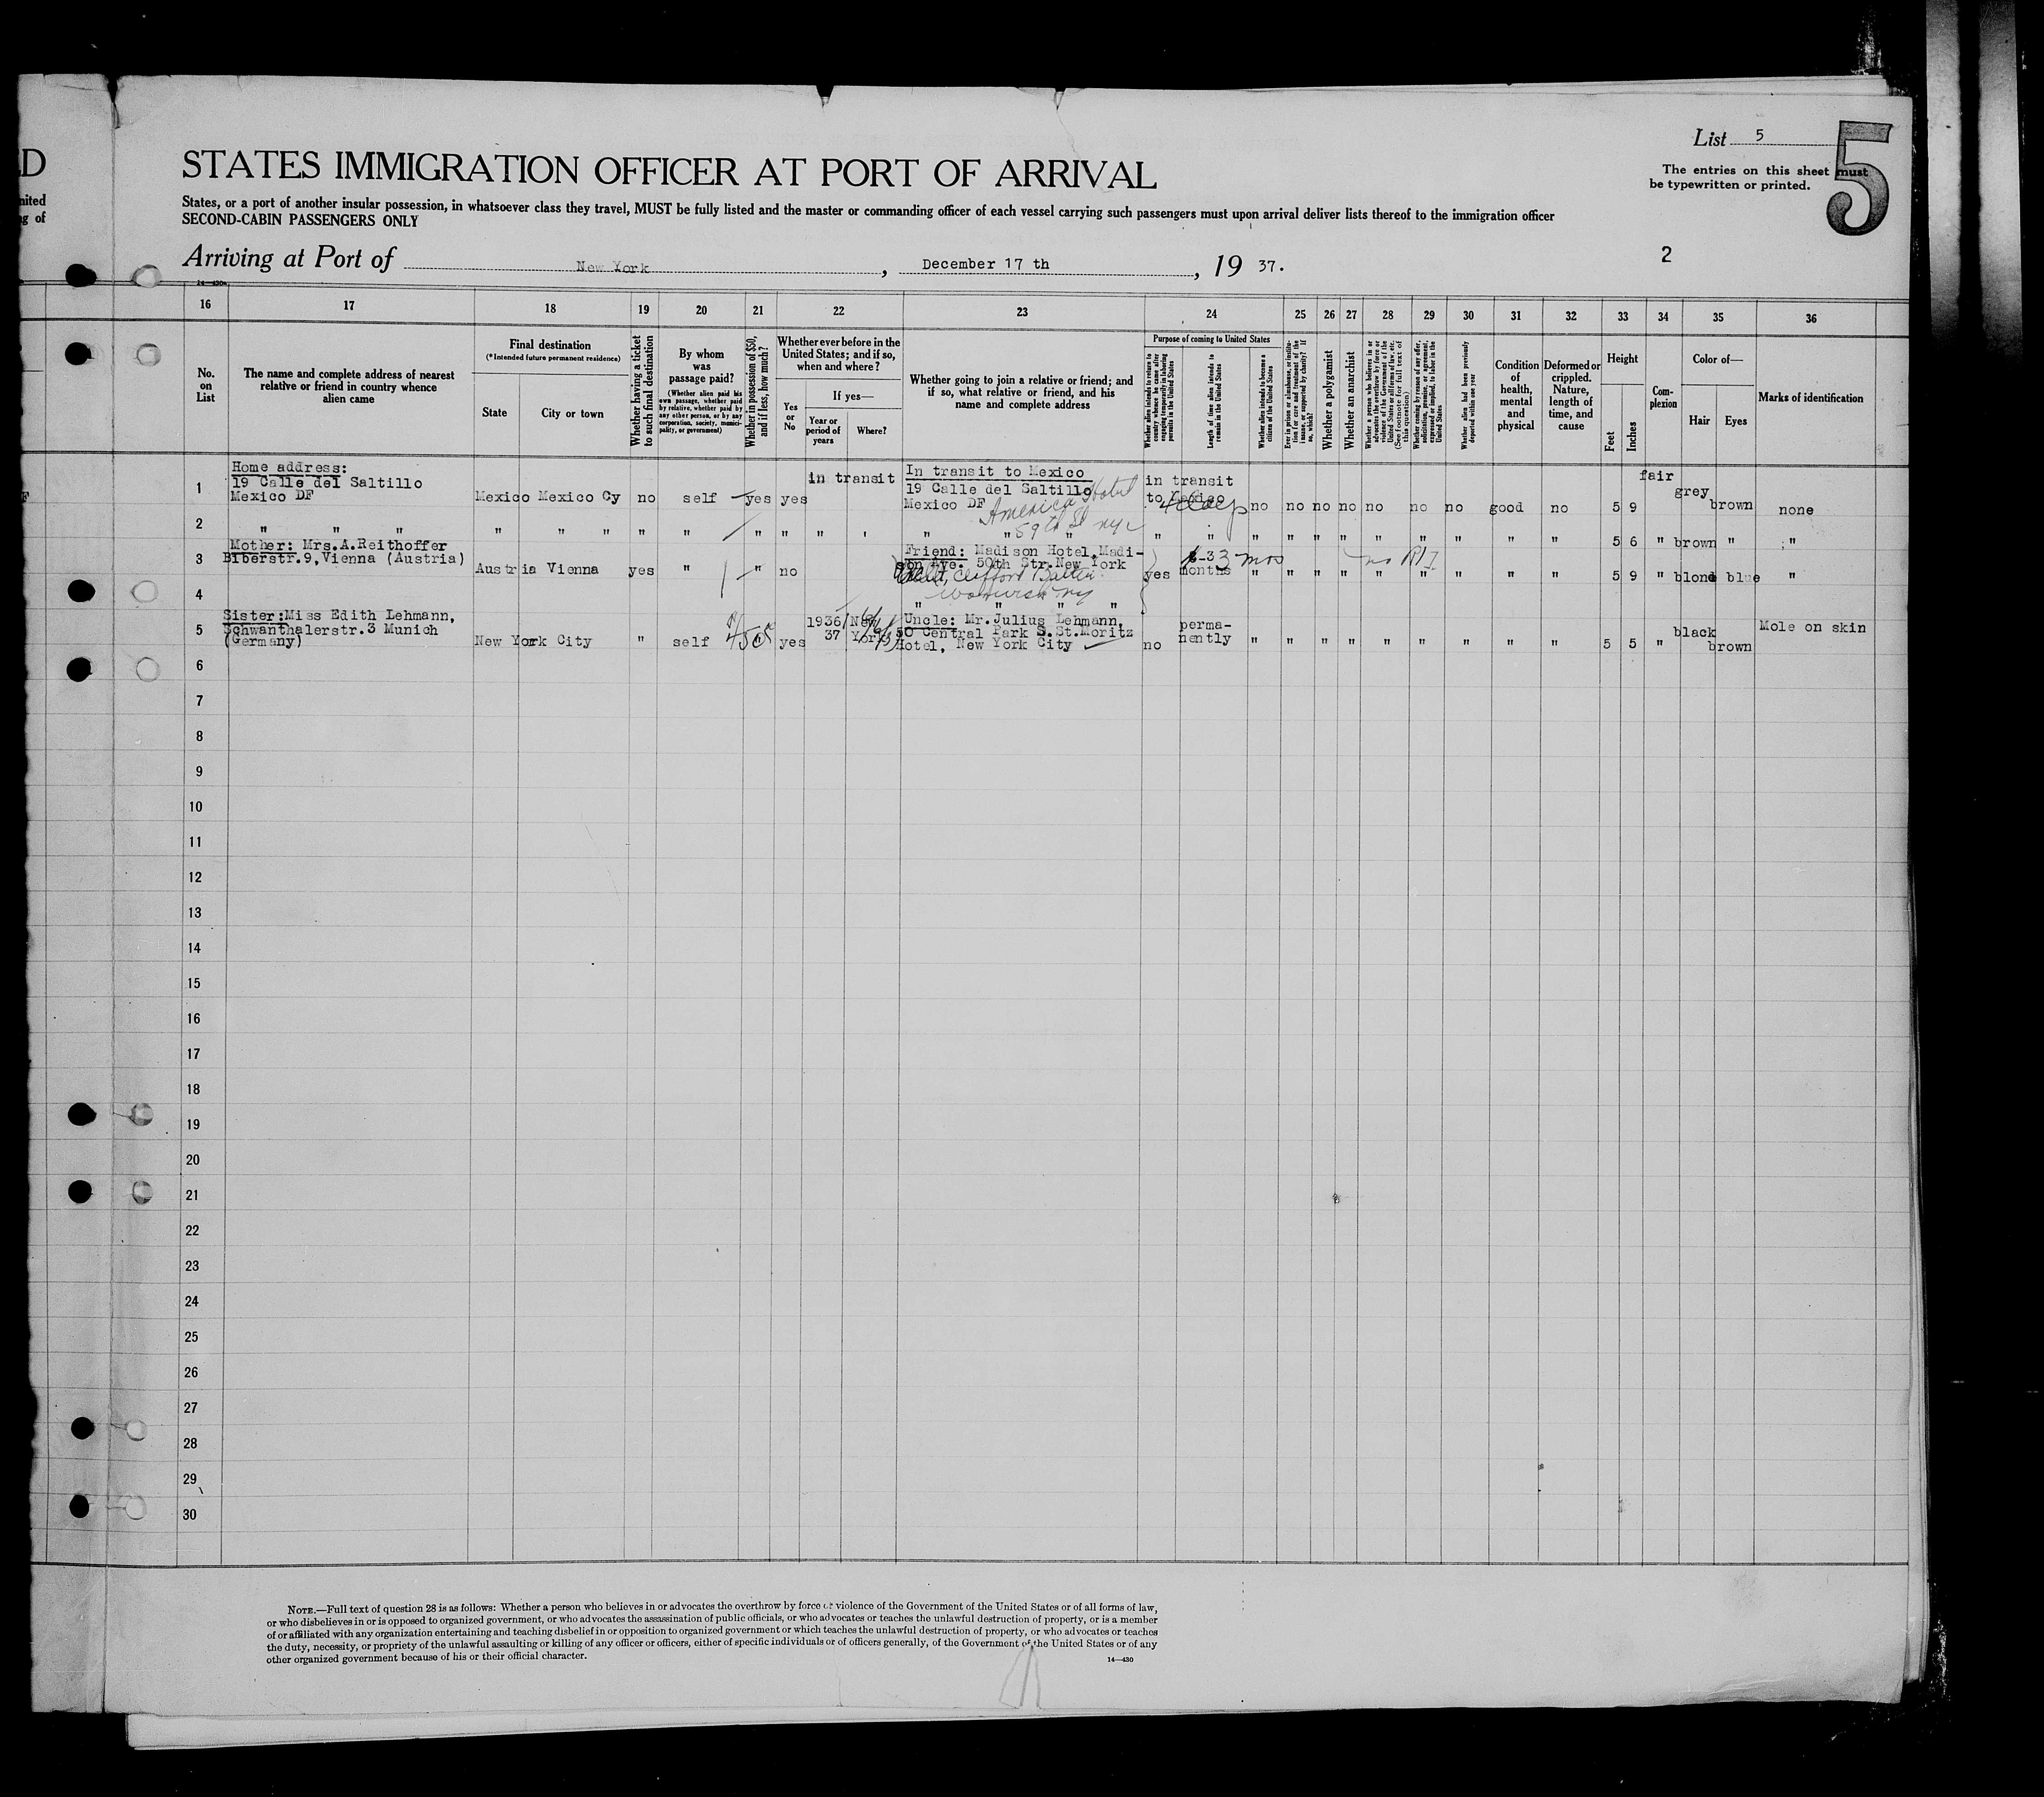 D
List 5
5
The entries on this sheet must
be typewritten or printed.
STATES IMMIGRATION OFFICER AT PORT OF ARRIVAL
nited
g of
States, or a port of another insular possession, in whatsoever class they travel, MUST be fully listed and the master or commanding officer of each vessel carrying such passengers must upon arrival deliver lists thereof to the immigration officer
SECOND-CABIN PASSENGERS ONLY
Arriving at Port of New York, December 17 th, 19 37.
2
14—430
16 17 18 19 20 21 22 23 24 25 26 27 28 29 30 31 32 33 34 35 36
No.
on
List
The name and complete address of nearest
relative or friend in country whence
alien came
Final destination
(*Intended future permanent residence)
State
City or town
Whether having a ticket
to such final destination
By whom
was
passage paid?
(Whether alien paid his
own passage, whether paid
by relative, whether paid by
any other person, or by any
corporation, society, munici-
pality, or government)
Whether in possession of $50,
and if less, how much?
Whether ever before in the
United States; and if so,
when and where?
Yes
or
No
If yes—
Year or
period of
years
Where?
Whether going to join a relative or friend; and
if so, what relative or friend, and his
name and complete address
Purpose of coming to United States
Whether alien intends to return to
country whence he came after
engaging temporarily in laboring
pursuits in the United States
Length of time alien intends to
remain in the United States
Whether alien intends to become a
citizen of the United States
Ever in prison or almshouse, or institu-
tion for care and treatment of the
insane, or supported by charity? If
so, which?
Whether a polygamist
Whether an anarchist
Whether a person who believes in or
advocates the overthrow by force or
violence of the Government of the
United States or all forms of law, etc.
(See footnote for full text of
this question)
Whether coming by reason of any offer,
solicitation, promise, or agreement,
expressed or implied, to labor in the
United States
Whether alien had been previously
deported within one year
Condition
of
health,
mental
and
physical
Deformed or
crippled.
Nature,
length of
time, and
cause
Height
Feet
Inches
Com-
plexion
Color of—
Hair
Eyes
Marks of identification
1
Home address:
19 Calle del Saltillo
Mexico DF
Mexico Mexico Cy no self yes yes
in transit
In transit to Mexico
19 Calle del Saltillo
Mexico DF
America Hotel
59th St nyc
in transit
to Mexico
4 days
no no no no no no no good no 5 9 fair grey brown none
2 " " " " " " " " " " " " " " " " " " " " " " " " " " " 5 6 " brown " "
3
Mother: Mrs.A.Reithoffer
Biberstr.9, Vienna (Austria)
Austria Vienna yes " " no
Friend: Madison Hotel, Madi-
son Ave. 50th Str. New York
yes
months
3 mos
" " " " " " " " " 5 9 " blond blue "
no
4 " " " "
5
Sister: Miss Edith Lehmann,
Schwanthalerstr.3 Munich
(Germany)
New York City " self yes
1936/
37
New
York
Uncle: Mr.Julius Lehmann,
50 Central Park S. St.Moritz
Hotel, New York City
no
perma-
nently
" " " " " " " " " 5 5 " black brown Mole on skin
6
7
8
9
10
11
12
13
14
15
16
17
18
19
20
21
22
23
24
25
26
27
28
29
30
NOTE.—Full text of question 28 is as follows: Whether a person who believes in or advocates the overthrow by force or violence of the Government of the United States or of all forms of law,
or who disbelieves in or is opposed to organized government, or who advocates the assassination of public officials, or who advocates or teaches the unlawful destruction of property, or is a member
of or affiliated with any organization entertaining and teaching disbelief in or opposition to organized government or which teaches the unlawful destruction of property, or who advocates or teaches
the duty, necessity, or propriety of the unlawful assaulting or killing of any officer or officers, either of specific individuals or of officers generally, of the Government of the United States or of any
other organized government because of his or their official character.
14—430